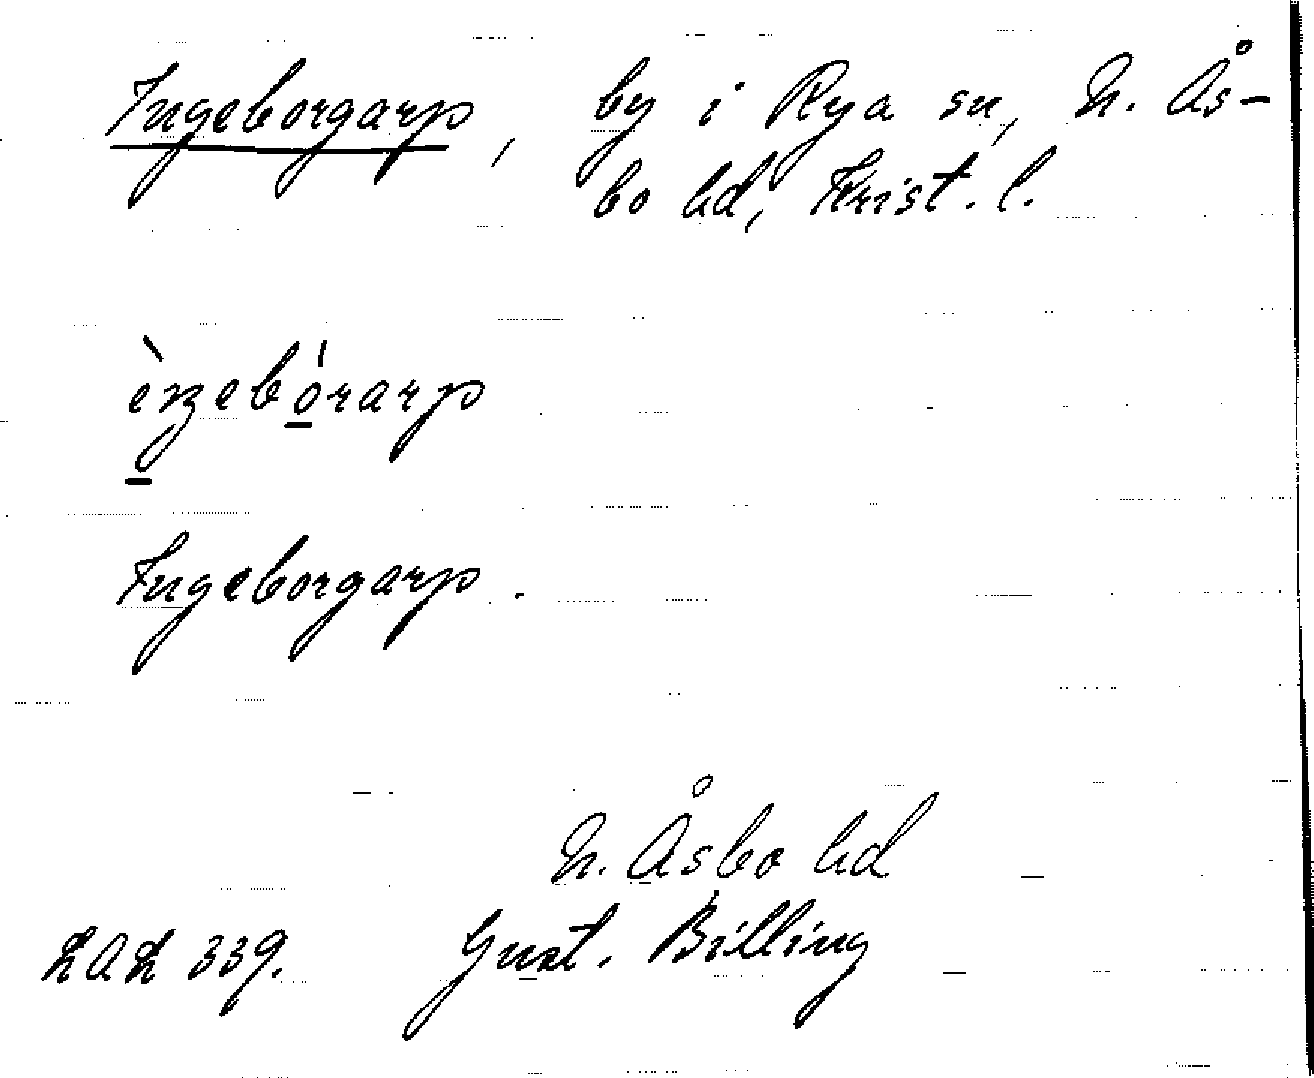 Ingeborgarp, by i Rya sn, N. Ås-
bo hd, Krist. l.
Ingeborgarp.
N. Åsbo hd
LAL 339. Gust. Billing